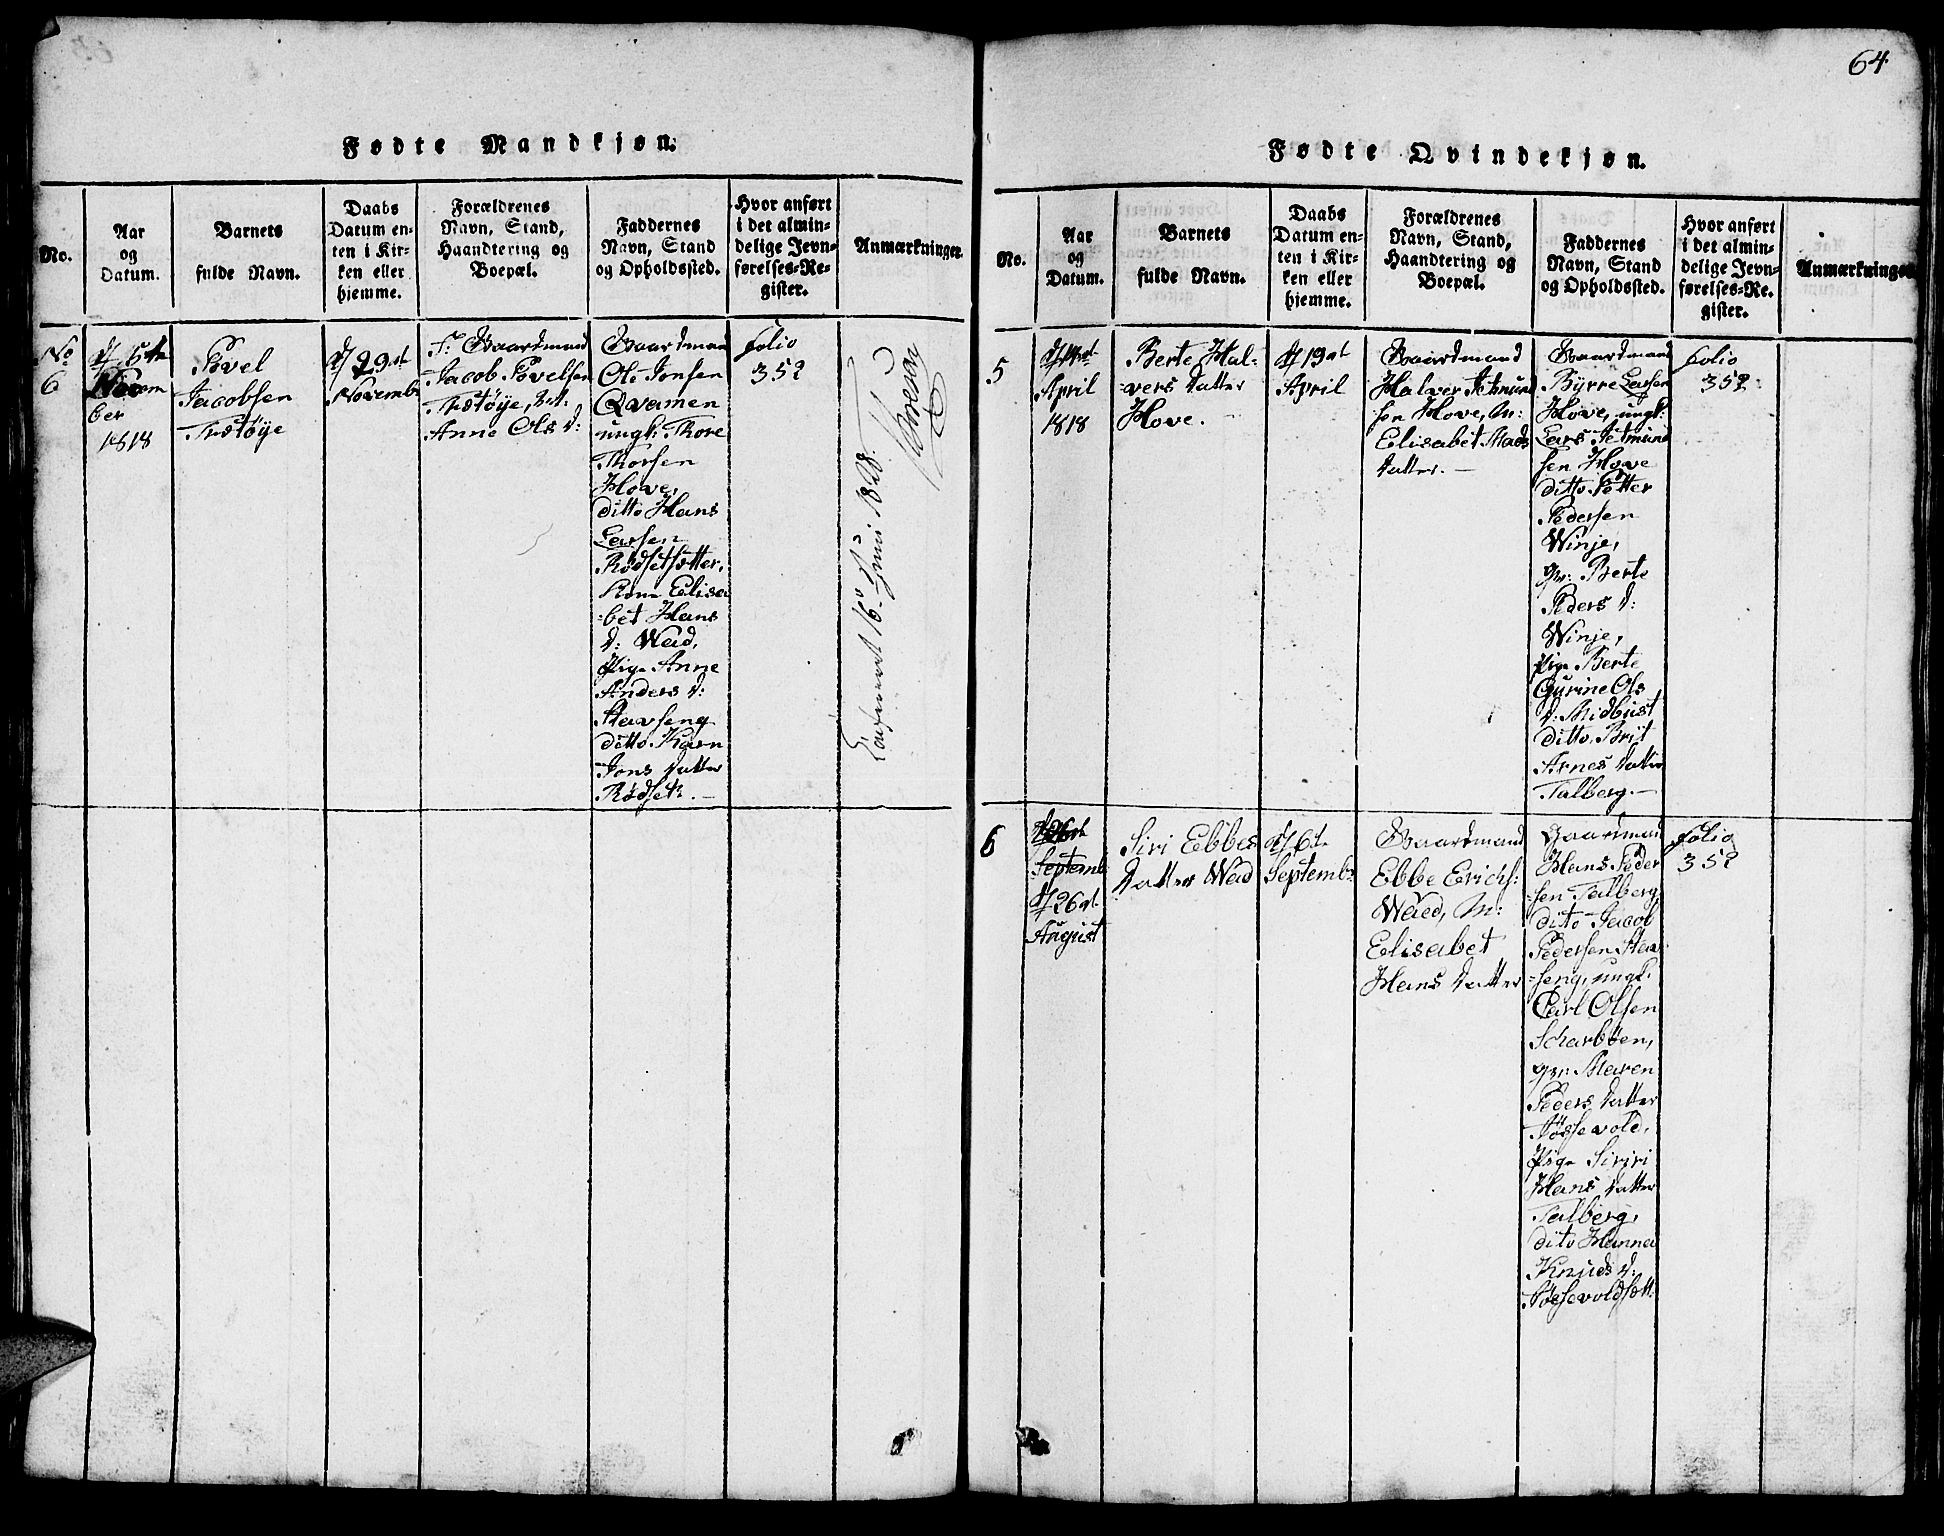 64
Fødte Mandkjøn.
No.
Aar
og
Datum.
Barnets
fulde Navn.
Daabs
Datum en-
ten i Kir-
ken eller
hjemme.
Forældrenes
Navn, Stand,
Haandtering og
Boepæl.
Faddernes
Navn, Stand
og Opholdssted.
Hvor anført
i det almin-
delige Jevn-
førelses-Re-
gister.
Anmærkninger.
No
6
d 5te
Novem
ber
1818
Povel
Jacobsen
Træstøye
d 29de
Novemb
F: Gaardmand
Jacob Povelsen
Træstøye, M:
Anne Ols d:
Gaardmand
Ole Jonsen
Qvamen
ungk: Thore
Thorsen
Hove,
ditto Hans
Larsen
Rødsetsetter,
Kone Elisa
=bet Hans
d: Wad,
Pige Anne
Anders d:
Stavseng
ditto Karn
Jons datter
Rødseth. —
folio
352
Confirmeret 16de Juni 1828.
Fødte Qvindekjøn.
No.
Aar
og
Datum.
Barnets
fulde Navn.
Daabs
Datum en-
ten i Kir-
ken eller
hjemme.
Forældrenes
Navn, Stand,
Haandtering og
Boepæl.
Faddernes
Navn, Stand
og Opholdssted.
Hvor anført
i det almin-
delige Jevn-
førelses-Re-
gister.
Anmærkninger
5
April
1818
Berte Hal-
vers datter
Hove.
d 19de
April
Gaardmand
Halver Jetmund
sen Hove, M:
Elisabet Mads
datter. —
Gaardmand
Byrre Larsen
Hove, ungk:
Lars Jetmund
sen Hove
ditto Petter
Pedersen
Winje,
qv: Berte
Peders d:
Winje,
Pige Berte
Gurine Ols
d: Midbust
ditto Brit
Arnes datter
Talberg. —
folio
352
6
d 26de
Septemb
d 26de
August
Siri Ebbes
datter Wad
d 6te
Septembr
Gaardmand
Ebbe Erichs:
Waed, M:
Elisabet
Hans datter
Gaardman
Hans Peder
=sen Talberg,
dito Jacob
Pedersen Stav
=seng, ungk:
Carl Olsen
Scharbøen,
qv: Maren
Peders datter
Nøssevold,
Pige Siriri
Hans datter
Talberg,
dito Hanna
Knuds d:
Nøssevoldsætt:
folio
352